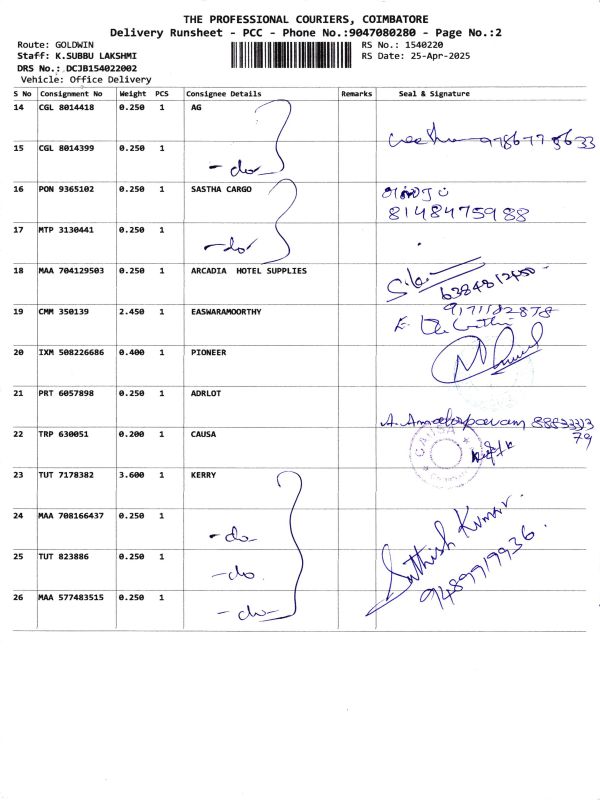 THE PROFESSIONAL COURIERS, COIMBATORE
Delivery Runsheet - PCC - Phone No.:9047080280 - Page No.:2
Route: GOLDWIN RS No.: 1540220
Staff: K.SUBBU LAKSHMI RS Date: 25-Apr-2025
DRS No.: DCJB154022002
Vehicle: Office Delivery
S No Consignment No Weight PCS Consignee Details Remarks Seal & Signature
14 CGL 8014418 0.250 1 AG
15 CGL 8014399 0.250 1 -do-
16 PON 9365102 0.250 1 SASTHA CARGO
8148475988
17 MTP 3130441 0.250 1 -do-
18 MAA 704129503 0.250 1 ARCADIA HOTEL SUPPLIES
19 CMM 350139 2.450 1 EASWARAMOORTHY
20 IXM 508226686 0.400 1 PIONEER
21 PRT 6057898 0.250 1 ADRLOT
22 TRP 630051 0.200 1 CAUSA CAUSA
23 TUT 7178382 3.600 1 KERRY
24 MAA 708166437 0.250 1 -do- Sathish Kumar
25 TUT 823886 0.250 1 -do- 9489919936
26 MAA 577483515 0.250 1 -do-